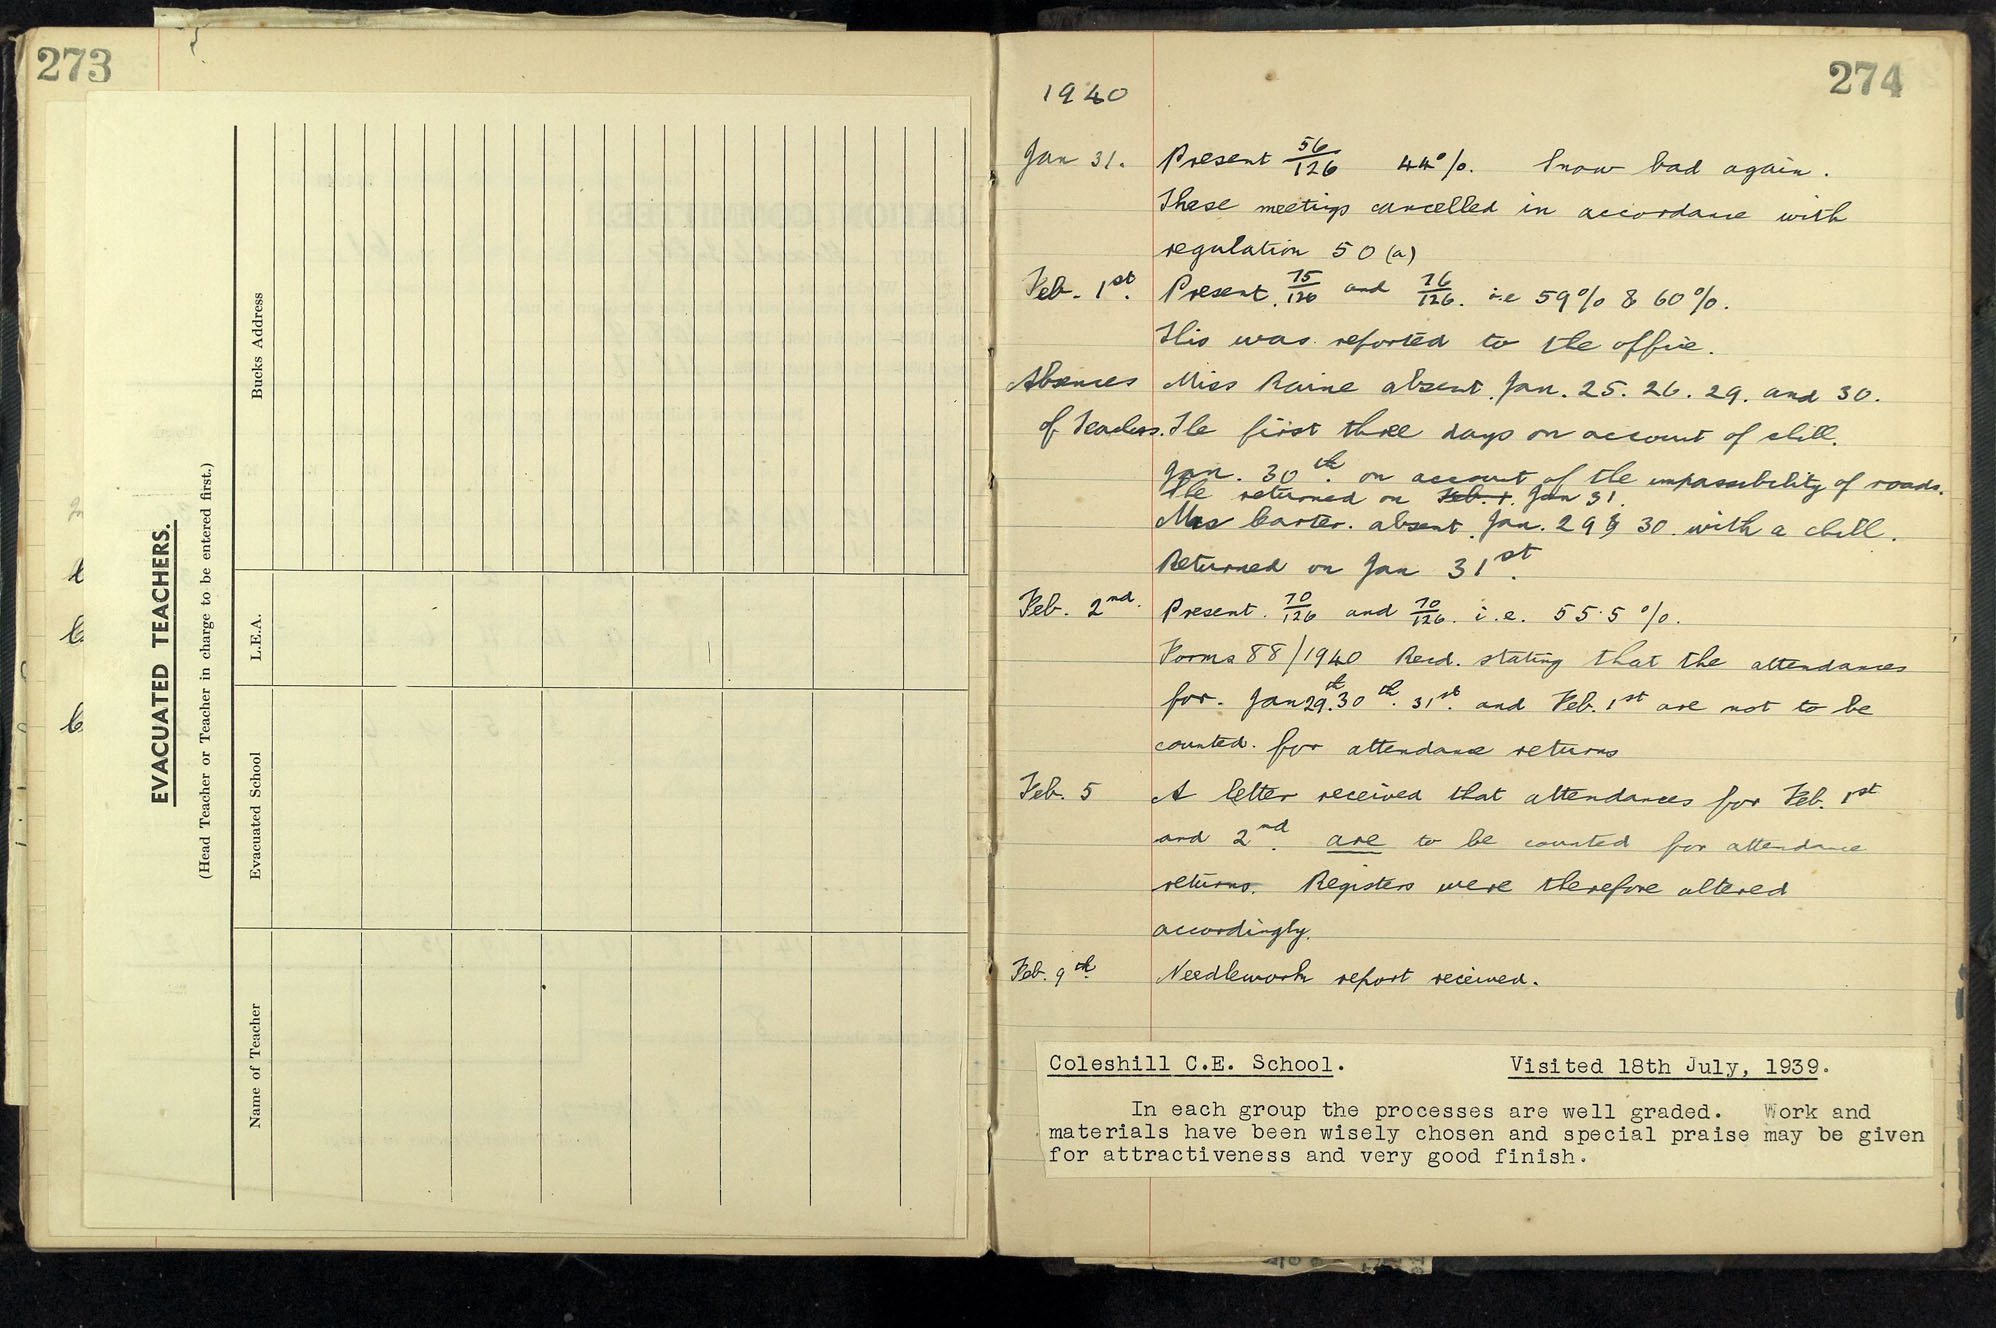 273
EVACUATED TEACHERS.
(Head Teacher or Teacher in charge to be entered first.)
Name of Teacher
Evacuated School
L.E.A.
Bucks Address
274
1940
Jan 31. Present 56/126 44%. Snow bad again.
These meetings cancelled in accordance with
regulation 50 (a)
Feb. 1st. Present 75/126 and 76/126. i.e 59% & 60%.
This was reported to the office.
Absences Miss Raine absent Jan. 25. 26. 29. and 30.
of Teachers. The first three days on account of chill.
Jan. 30th. on account of the impassibility of roads.
She returned on Feb. 1. Jan 31.
Mrs Carter. absent Jan. 29 & 30 with a chill.
Returned on Jan 31st.
Feb. 2nd. Present. 70/126 and 70/126. i.e. 55.5%.
Forms 88/1940 Recd. stating that the attendances
for. Jan 29th. 30th. 31st. and Feb. 1st are not to be
counted. for attendance returns
Feb. 5 A letter received that attendances for Feb. 1st
and 2nd. are to be counted for attendance
returns. Registers were therefore altered
accordingly.
Feb. 9th. Needlework report received.
Coleshill C.E. School. Visited 18th July, 1939.
In each group the processes are well graded. Work and
materials have been wisely chosen and special praise may be given
for attractiveness and very good finish.